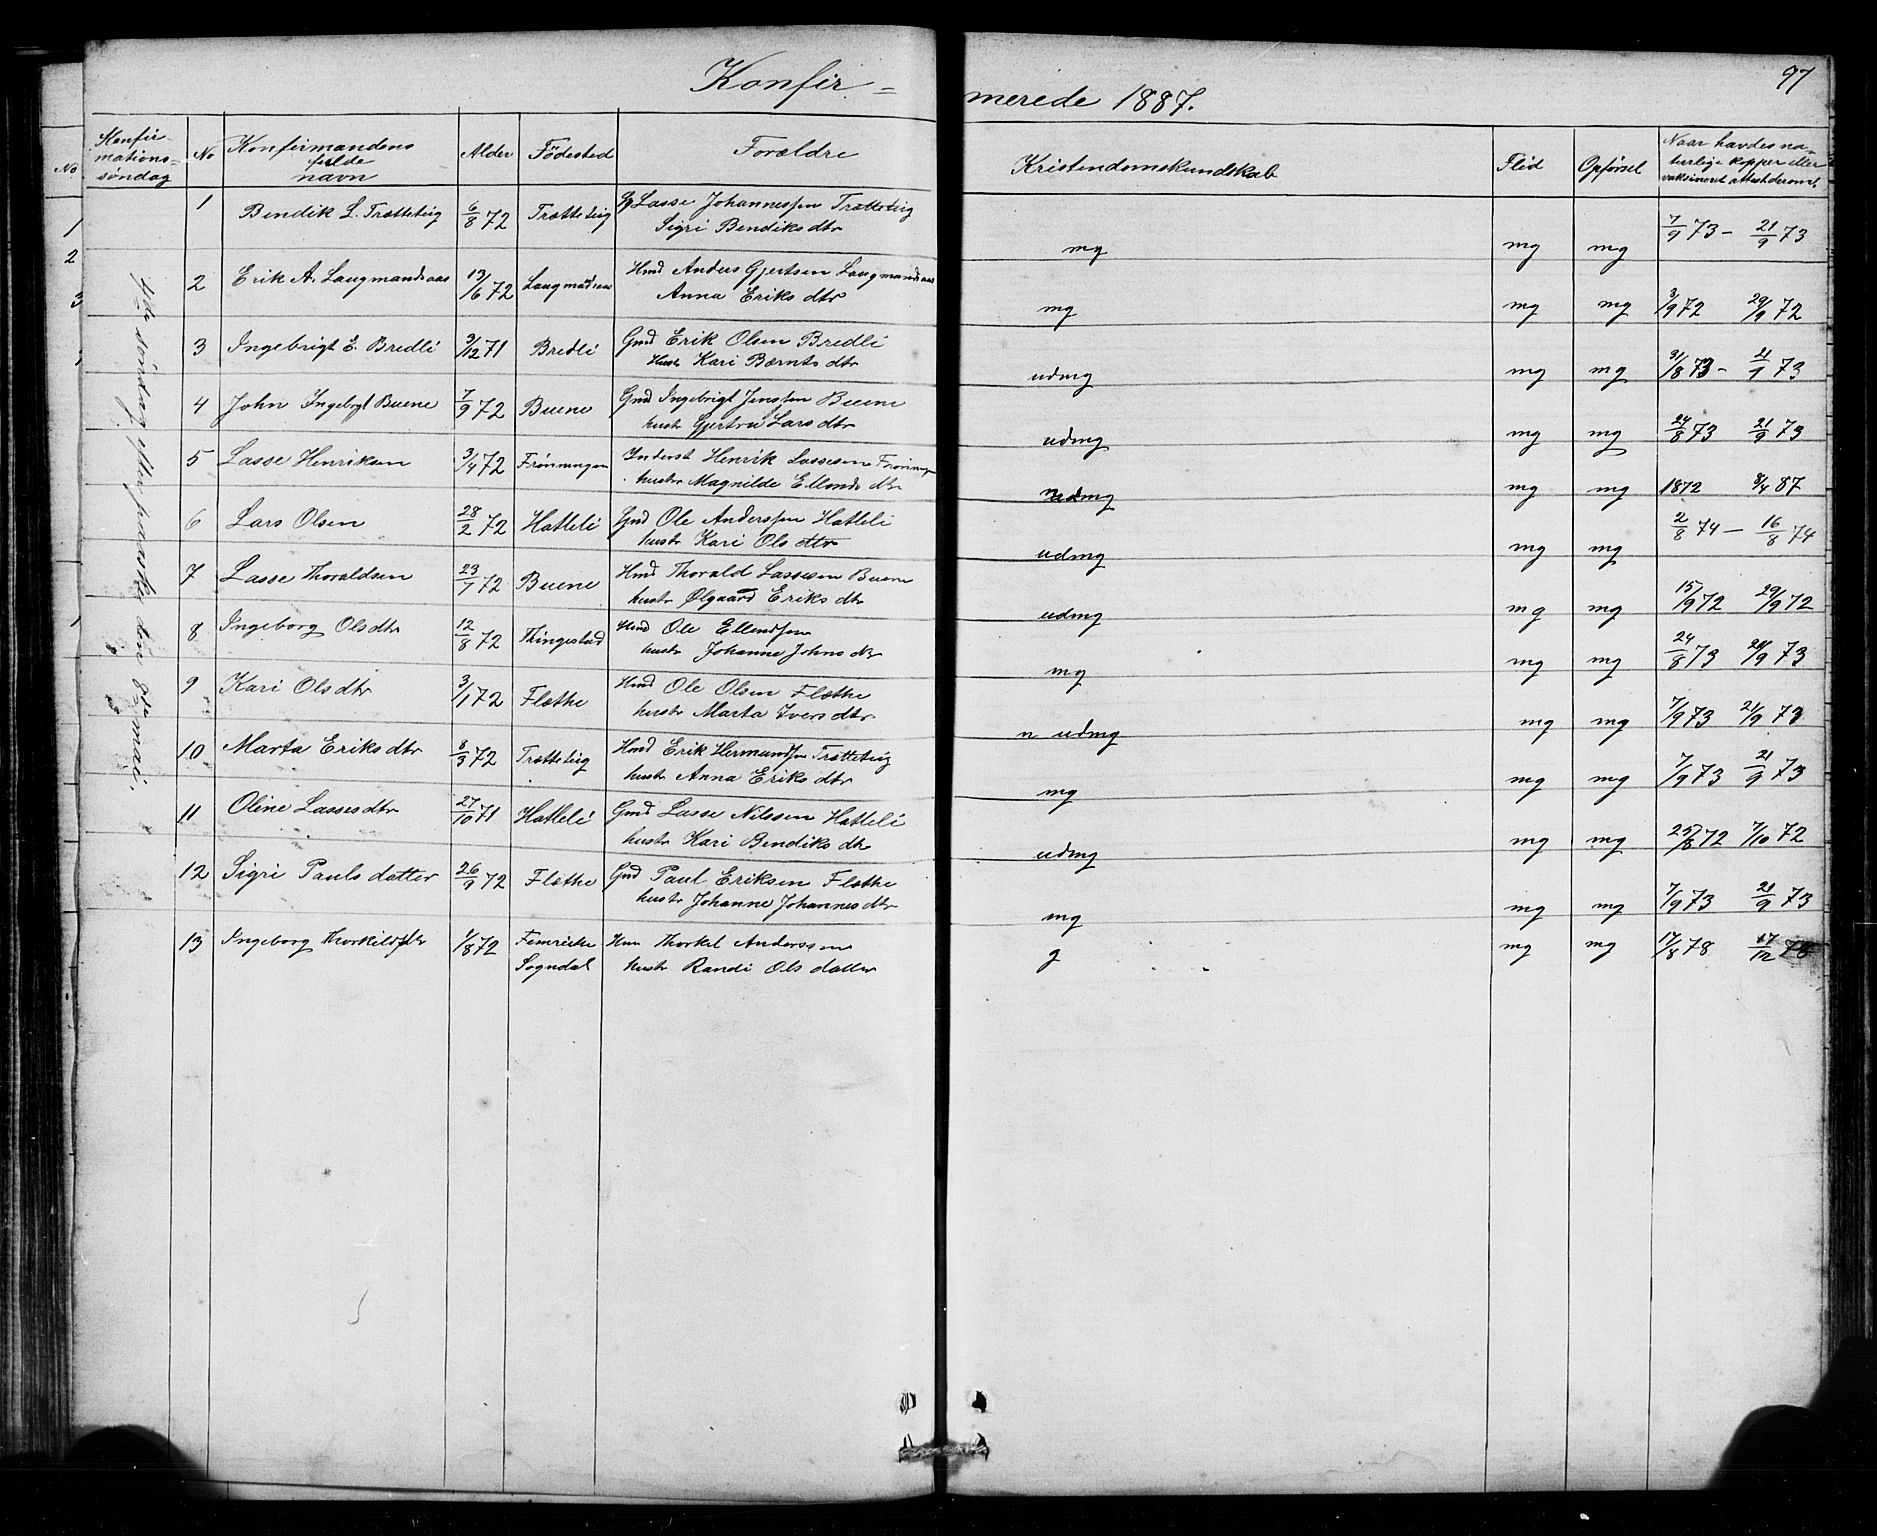 97
Konfir-
merede 1887.
Konfirmationssøndag No Konfirmandens fulde navn Alder Födested Forældre Kristendomskundskab Flid Opförsel Naar havdes naturlige kopper eller vaksineret attest derom.
4de söndag efter paaske den 8de mai.
1 Bendik L. Trætteteig 6/8 72 Trætteteig Lasse Johannessen Trætteteig mg mg mg 7/9 73 - 21/9 73
Sigri Bendiksdtr
2 Erik A. Laugmandsaas 13/6 72 Laugmandsaas Hmd Anders Gjertsen Laugmandsaas mg mg mg 3/9 72 29/9 72
Anna Eriksdtr
3 Ingebrigt E. Bredli 3/12 71 Bredli Gmd Erik Olsen Bredli udmg mg mg 31/8 73 - 21/9 73
Hustr Kari Bærntsdtr
4 John Ingebrgt Buene 7/9 72 Buene Gmd Ingebrigt Jenssen Buene udmg mg mg 24/8 73 21/9 73
hustr Gjertru Larsdtr
5 Lasse Henriksen 3/4 72 Frønningen Inderst Henrik Lassesen Frønningen udmg mg mg 1872 8/4 87
hustr Magnilde Ellendsdtr
6 Lars Olsen 28/2 72 Hatleli Gmd Ole Anderssen Hatleli udmg mg mg 2/8 74 - 16/8 74
hustr Kari Olsdtr
7 Lasse Thoraldsen 23/7 72 Buene Hmd Thorald Lassesen Buene udmg mg mg 15/9 72 29/9 72
hustr Ølgaard Eriksdtr
8 Ingeborg Olsdtr 12/8 72 Thingestad Hmd Ole Ellendsen mg mg mg 24/8 73 21/9 73
hustr Johanne Johnsdtr
9 Kari Olsdtr 3/1 72 Flæthe Hmd Ole Olsen Flæthe n udmg mg mg 7/9 73 21/9 73
hustr Marta Iversdtr
10 Marta Eriksdtr 8/3 72 Trætteteig Hmd Erik Hermundsen Trætteteig mg mg mg 7/9 73 21/9 73
hustr Anna Eriksdtr
11 Oline Lassesdtr 27/10 71 Hatleli Gmd Lasse Nilssen Hatleli udmg mg mg 25/8 72 7/10 72
hustr Kari Bendiksdtr
12 Sigri Paulsdatter 26/9 72 Flæthe Gmd Paul Eriksen Flæthe mg mg mg 7/9 73 21/9 73
hustr Johanne Johannesdtr
13 Ingeborg Thorkildsdtr 1/8 72 Thorkel Anderssen g mg mg 17/8 78 17/12 78
Sogndal hustr Randi Olsdatter